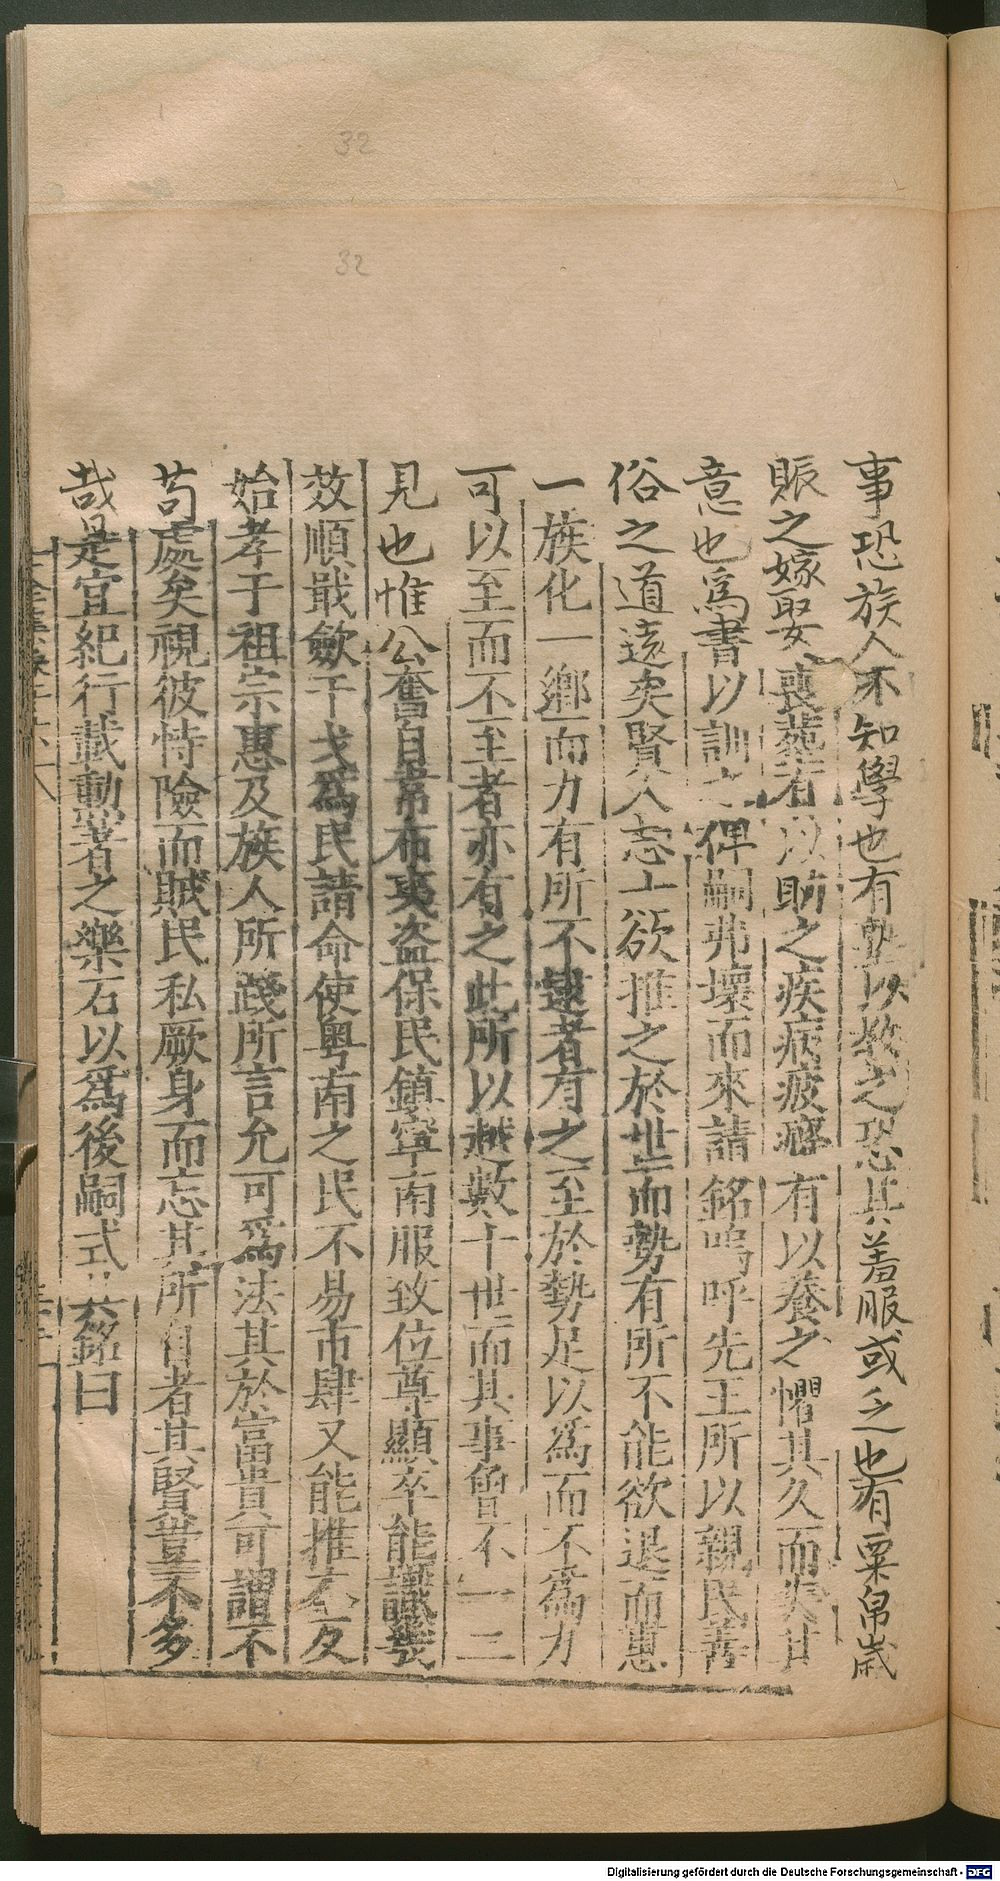 32
32
事恐族人不知學也有塾以教之恐其羞服或乏也有粟帛歲
賑之嫁娶喪葬有以助之疾病疲癃有以養之懼其久而失其
意也爲書以訓之俾嗣弗壞而來請銘嗚呼先王所以親民善
俗之道遠矣賢人志士欲推之於世而勢有所不能欲退而惠
一族化一鄉而力有所不逮者有之至於勢足以爲而不爲力
可以至而不至者亦有之此所以越數十世而其事曾不一二
見也惟公奮自韋布夷盗保民鎮寧南服致位尊顯卒能讖㢤
效順戢斂干戈爲民請命使粤南之民不易市肆又能推本反
始孝于祖宗惠及族人所踐所言允可爲法其於富貴可謂不
苟處矣視彼恃險而賊民私厥身而忘其所自者其賢豈不多
哉是宜紀行載勳著之樂石以爲後嗣式云銘曰
Digitalisierung gefördert durch die Deutsche Forschungsgemeinschaft - DFG